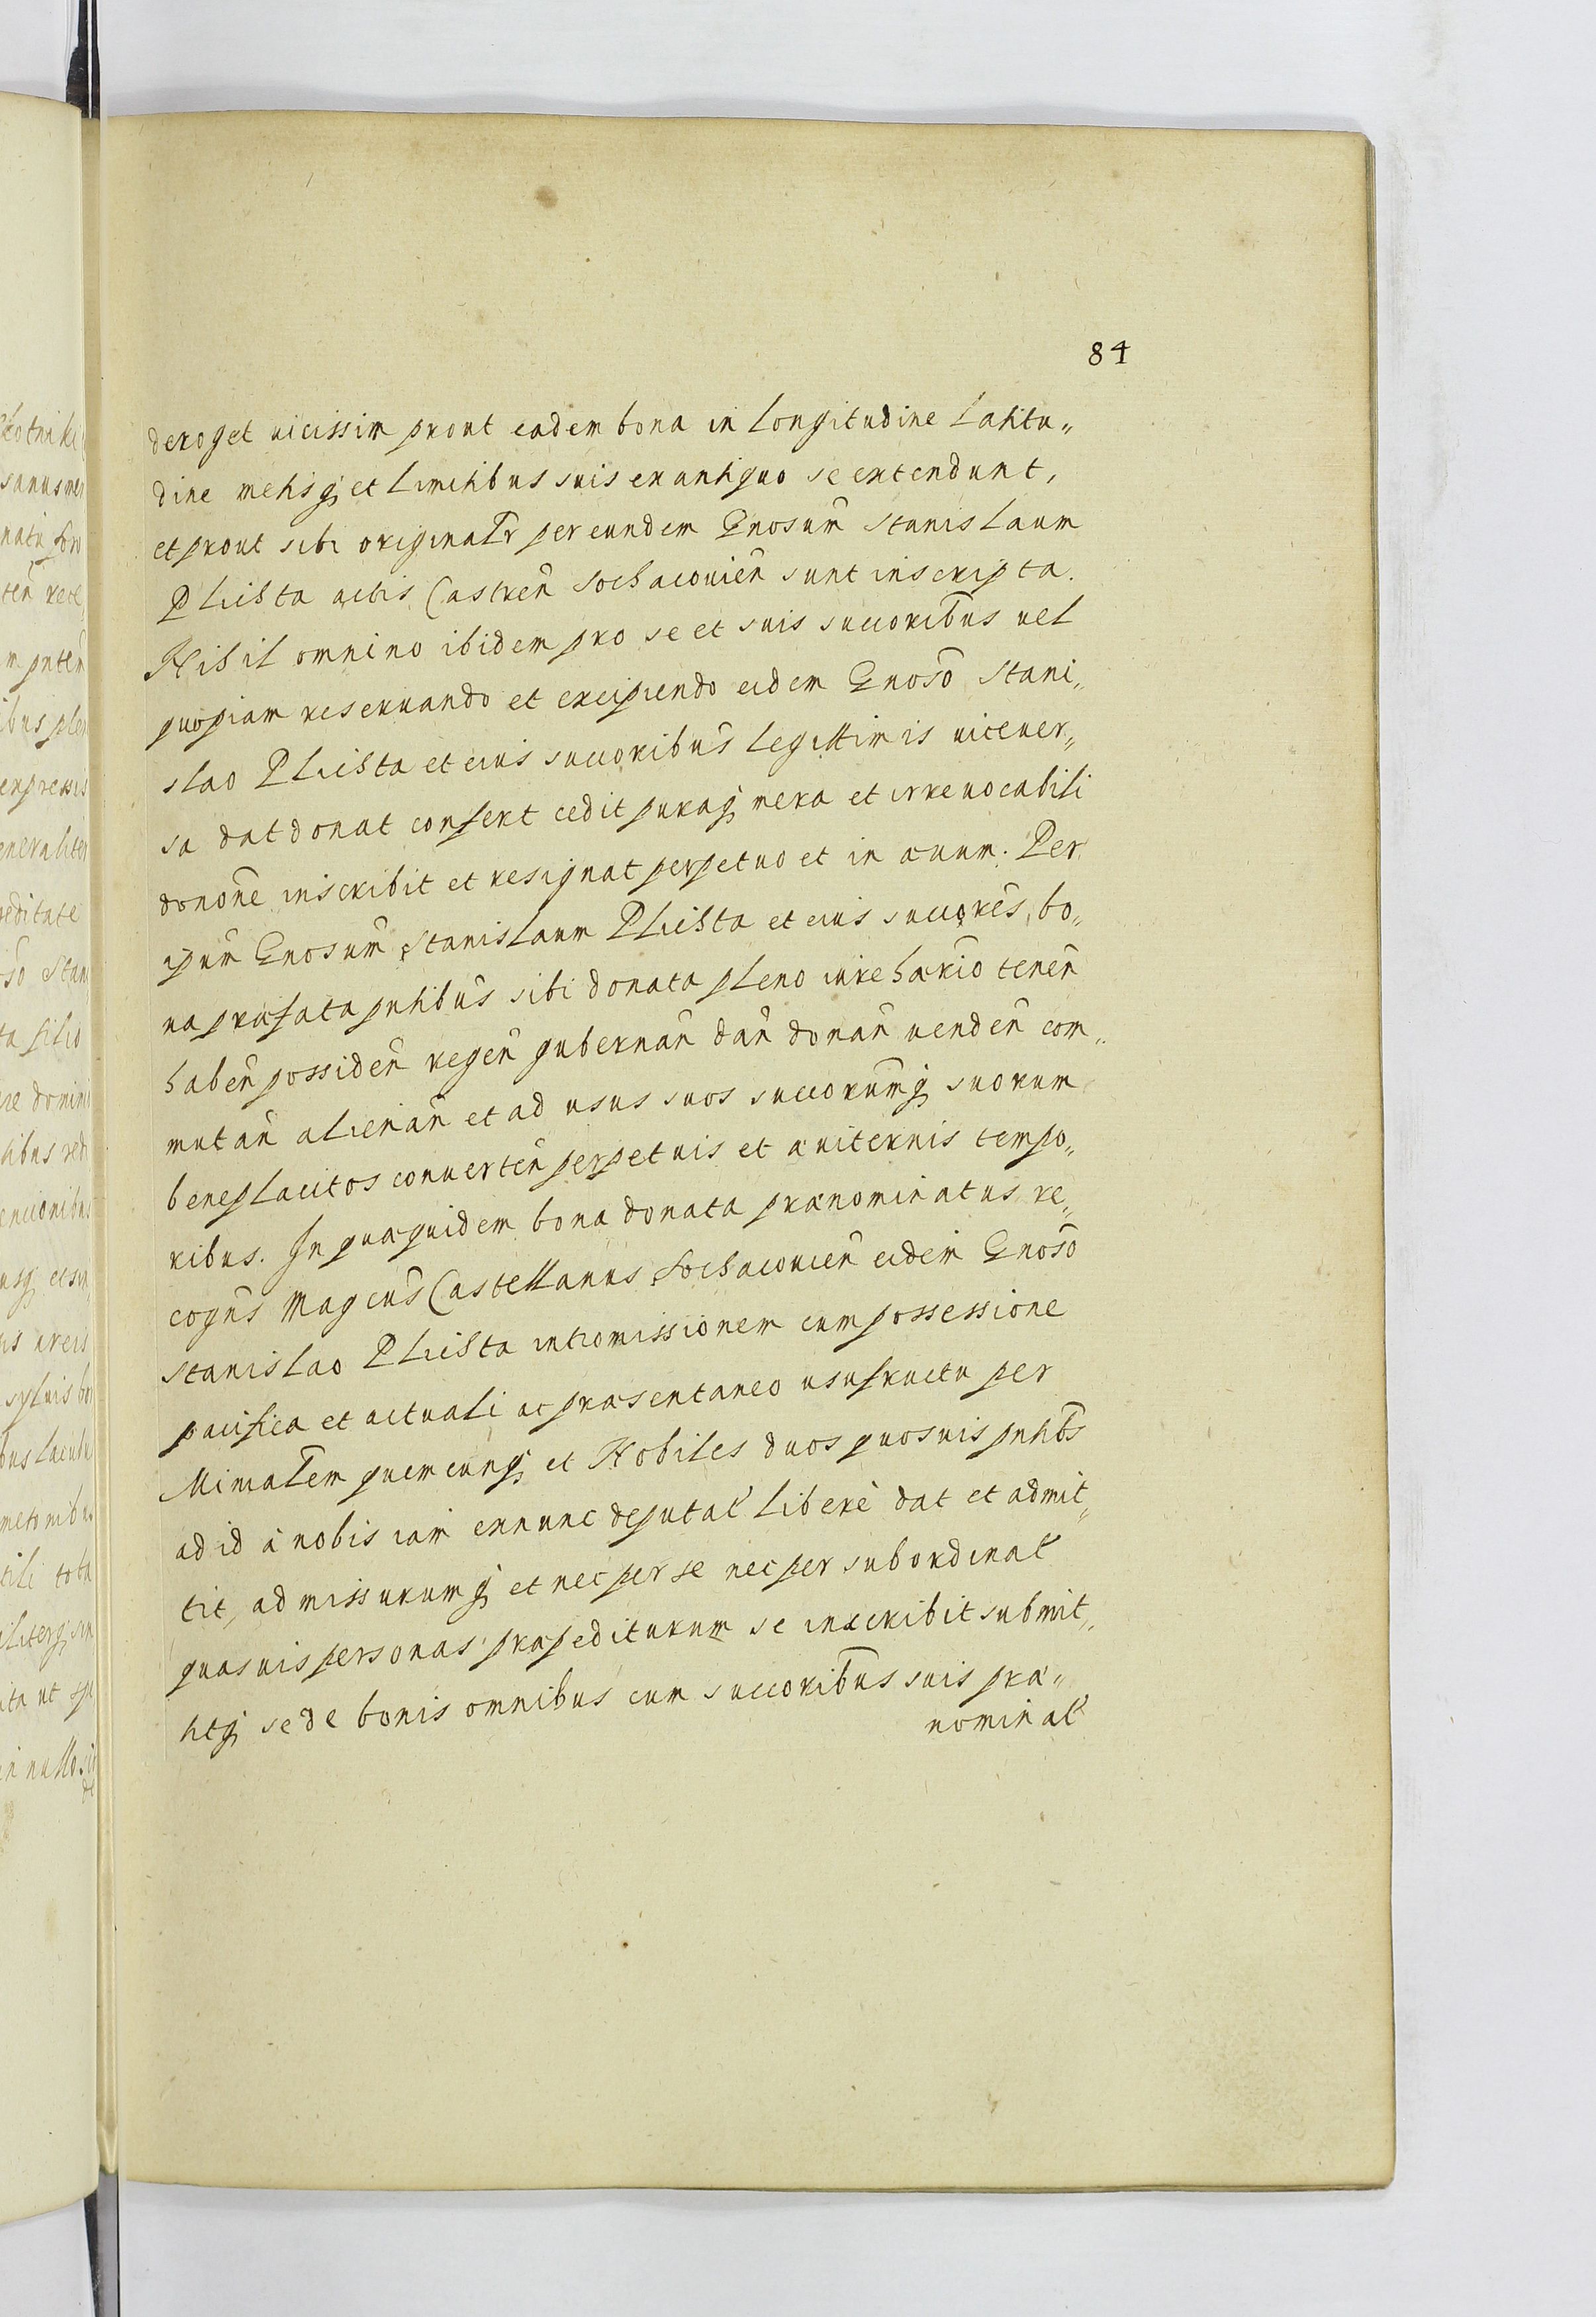 84
deroget uicissim prout eadem bona in Longitudine Latitu„
dine metisq́ et Limitibus suis ex antiquo se extendunt,
et prout sibi originalr̄ per eundem Gnosum̄ Stanislaum
Plichta actis Castren̄ Sochaczouien̄ sunt inscripta.
Nihil omnino ibidem pro se et suis succoribus̄ uel
quopiam reseruando et excipiendo eidem Gnosō Stani„
slao Plichta et eius succoribus̄ Legittimis uiceuer„
sa dat donat confert cedit puraq́ mera et irreuocabili
dononē inscribit et resignat perpetuo et in æuum. Per
ipum̄ Gnosum̄ Stanislaum Plichta et eius succorēs, bo„
na præfata pntibus̄ sibi donata pleno iure hærio tenen̄
haben̄ possiden̄ regen̄ gubernan̄ dan̄ donan̄ uenden̄ com„
mutan̄ alienan̄ et ad usus suos succorumq́ suorum
beneplacitos conuerten̄ perpetuis et æuiternis tempo„
ribus. In quæquidem bona donata prænominatus re„
cogn̄s Magcus̄ Castellanus Sochaczouien̄ eidem Gnosō
Stanislao Plichta intromissionem cum possessione
pacifica et actuali ac præsentaneo usufructu per
Minialem̄ quemcunq́ et Nobiles duos quosuis pntibs̄
ad id à nobis iam exnunc deputat̄ Liberè dat et admit„
tit, admissurumq́ et nec per se nec per subordinat̄
quasuis personas præpediturum se inscribit submit„
titq́ se de bonis omnibus cum succoribus̄ suis præ„
nominat̄